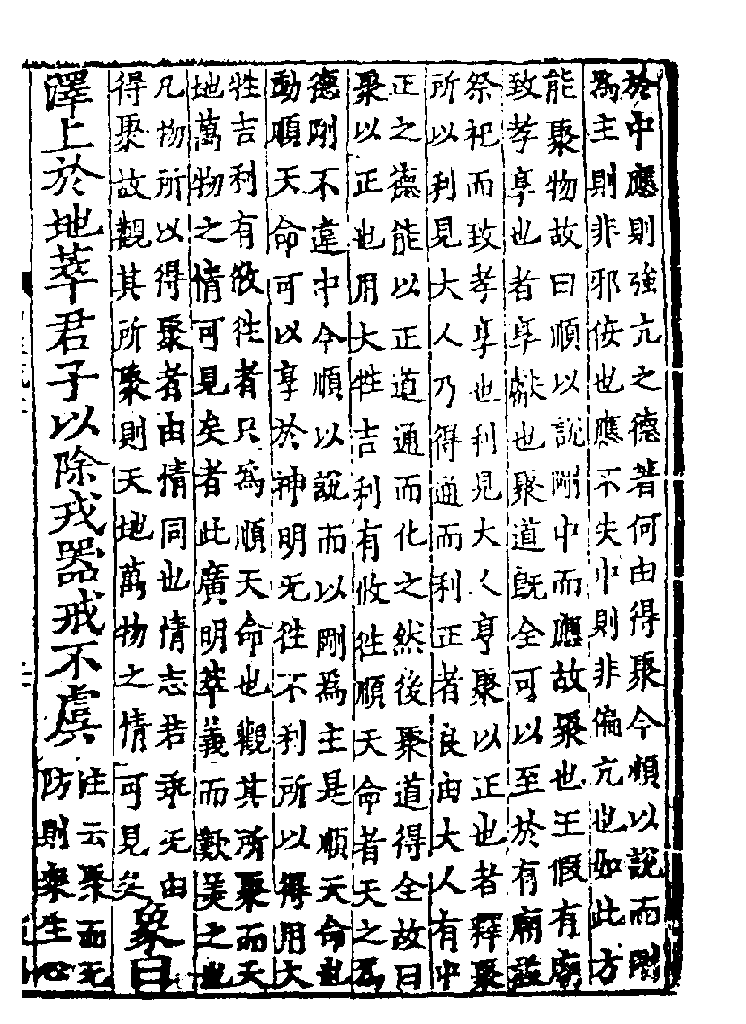 於中應則強亢之德著何由得聚今順以說而剛
為主則非邪佞也應不失中則非偏亢也如此方
能聚物故曰順以說剛中而應故聚也王假有廟
致孝享也者享獻也聚道既全可以至於有廟設
祭祀而致孝享也利見大人亨聚以正也者釋聚
所以利見大人乃得通而利正者良由大人有中
正之德能以正道通而化之然後聚道得全故曰
聚以正也用大牲吉利有攸往順天命者天之為
德剛不違中今順以說而以剛為主是順天命也
動順天命可以享於神明无往不利所以得用大
牲吉利有攸往者只為順天命也觀其所聚而天
地萬物之情可見矣者此廣明萃義而歎美之也
凡物所以得聚者由情同也情志若乖无由
得聚故觀其所聚則天地萬物之情可見矣
象曰
澤上於地萃君子以除戎器戒不虞
注云聚而无
防則衆生心